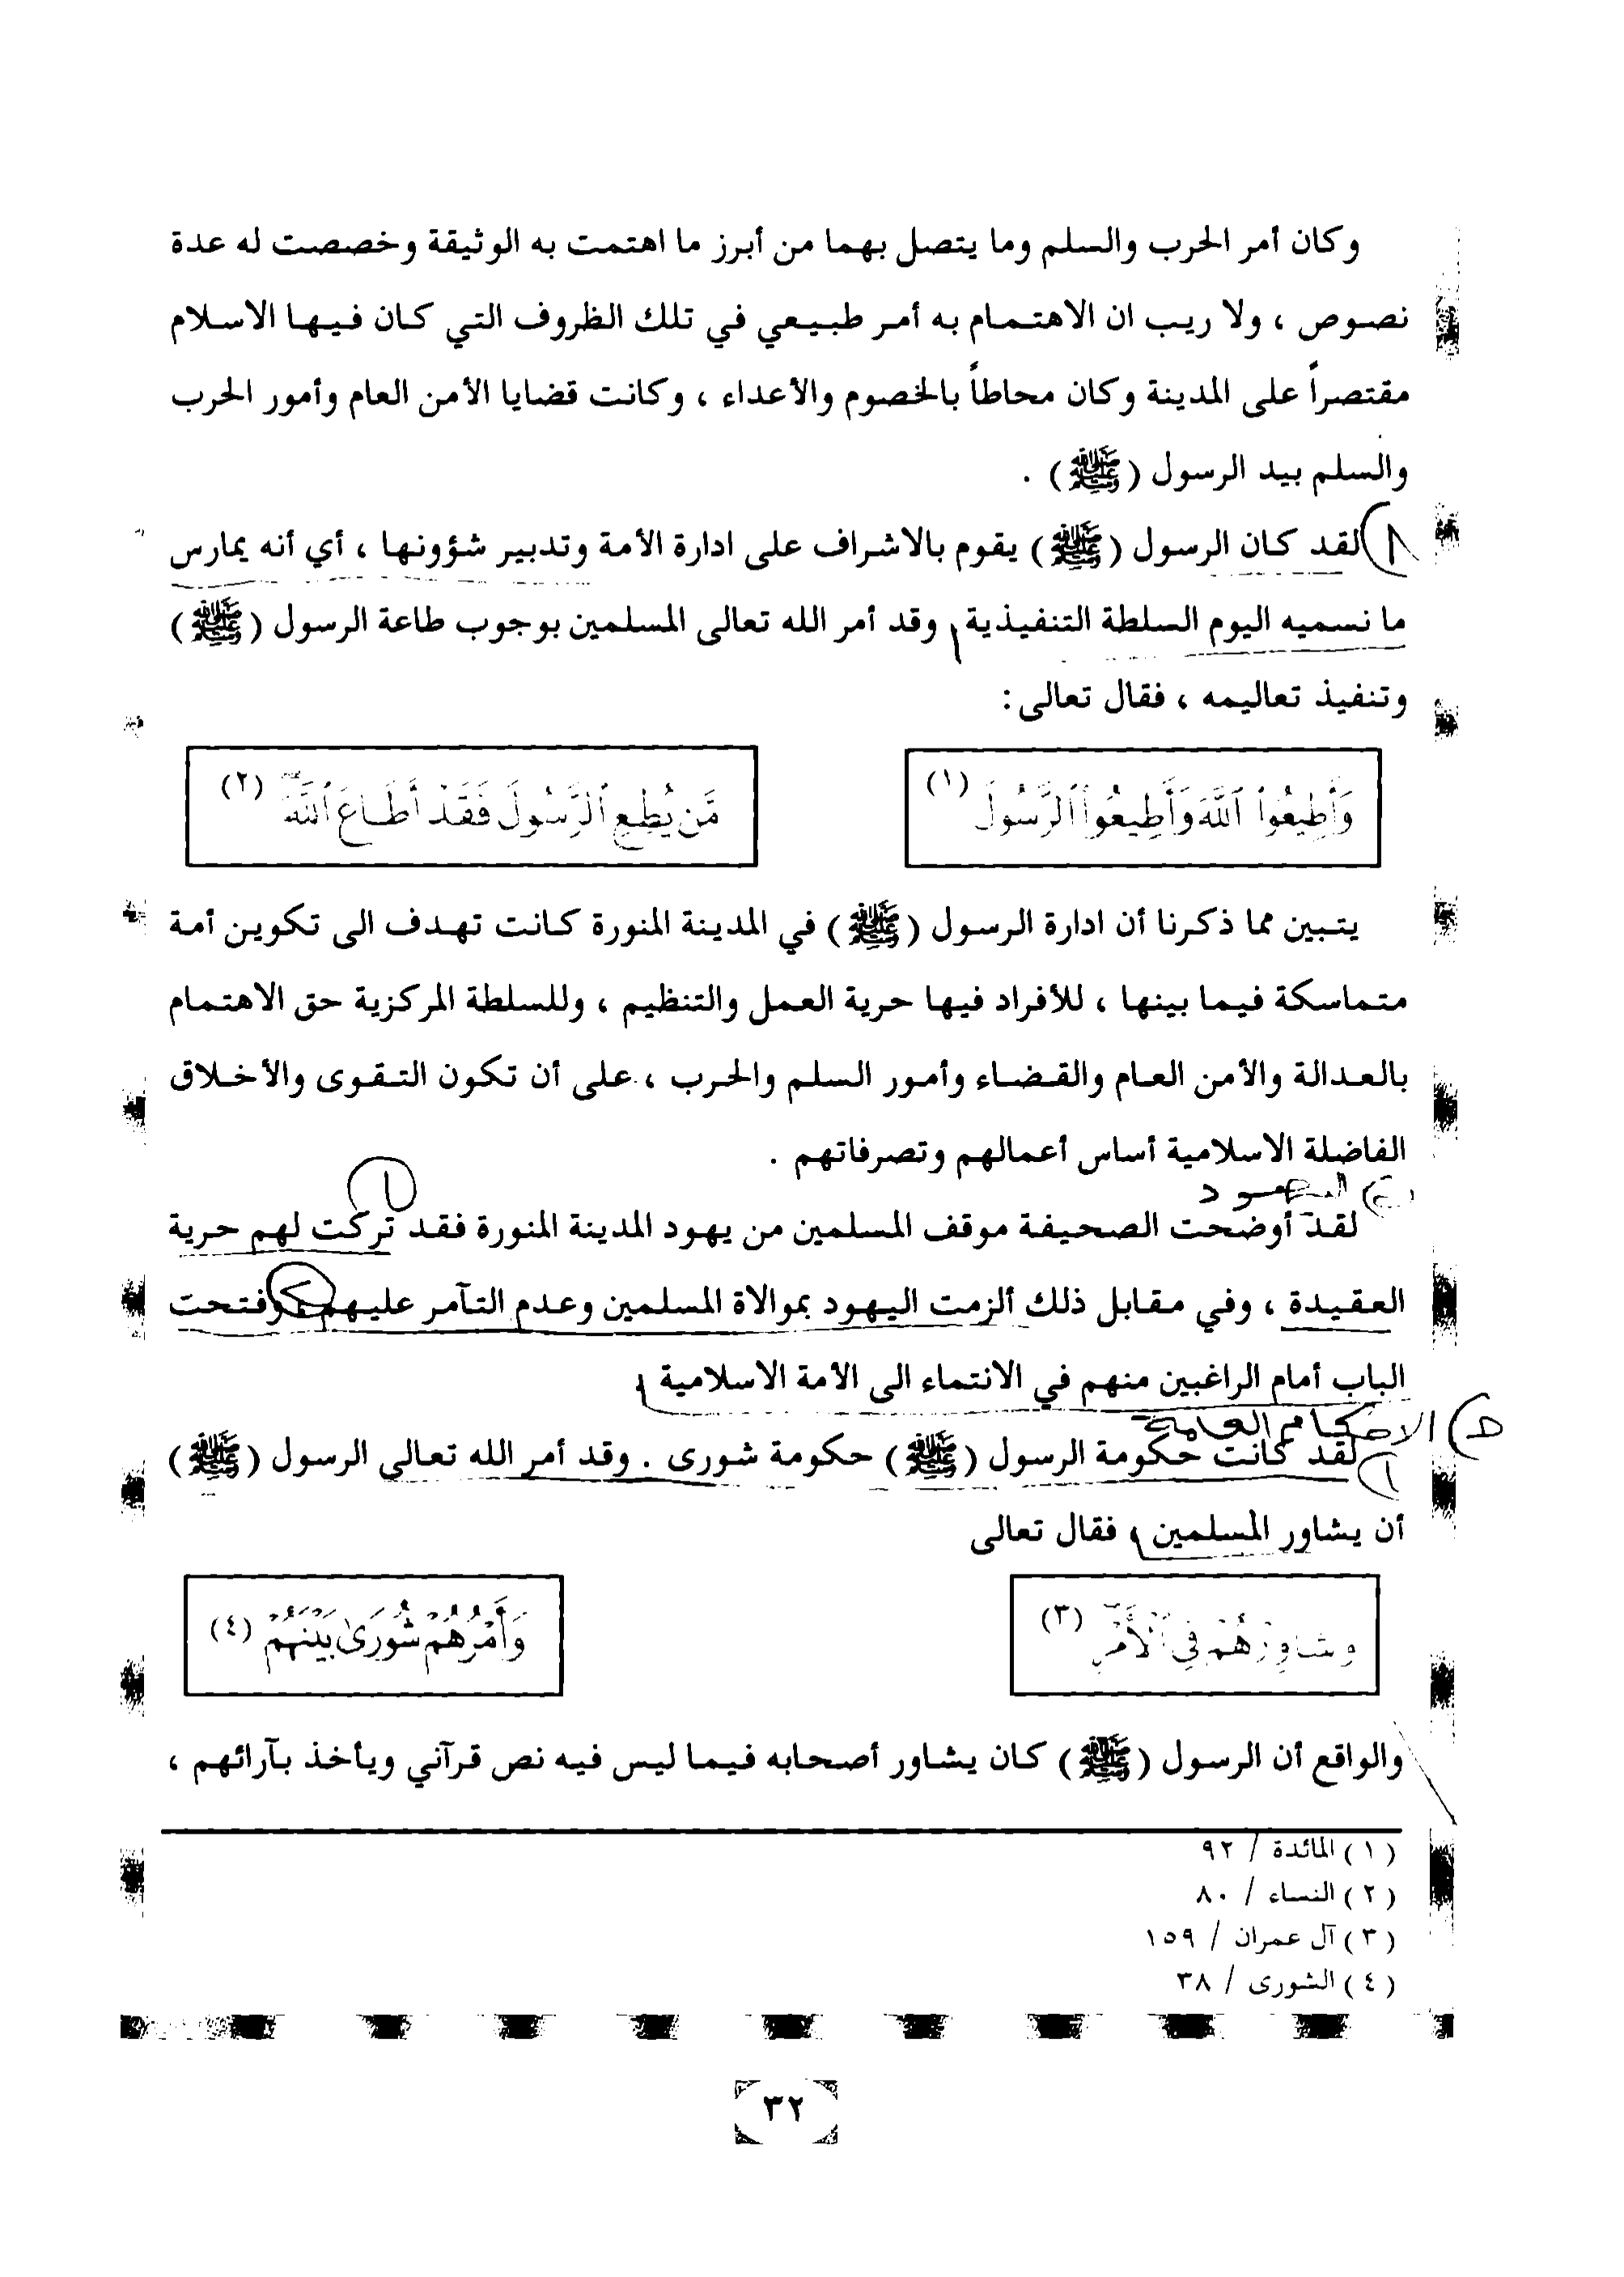 وكان أمر الحرب والسلم وما يتصل بهما من أبرز ما اهتمت به الوثيقة وخصصت له عدة
نصوص ، ولا ريب ان الاهتمام به أمر طبيعي في تلك الظروف التي كان فيها الاسلام
مقتصراً على المدينة وكان محاطاً بالخصوم والأعداء ، وكانت قضايا الأمن العام وأمور الحرب
والسلم بيد الرسول (ﷺ) .
٨) لقد كان الرسول (ﷺ) يقوم بالاشراف على ادارة الأمة وتدبير شؤونها ، أي أنه يمارس
ما نسميه اليوم السلطة التنفيذية ، وقد أمر الله تعالى المسلمين بوجوب طاعة الرسول (ﷺ)
وتنفيذ تعاليمه ، فقال تعالى:
وَأَطِيعُوا۟ ٱللَّهَ وَأَطِيعُوا۟ ٱلرَّسُولَ (١)
مَّن يُطِعِ ٱلرَّسُولَ فَقَدْ أَطَاعَ ٱللَّهَ (٢)
يتبين مما ذكرنا أن ادارة الرسول (ﷺ) في المدينة المنورة كانت تهدف الى تكوين أمة
متماسكة فيما بينها ، للأفراد فيها حرية العمل والتنظيم ، وللسلطة المركزية حق الاهتمام
بالعدالة والأمن العام والقضاء وأمور السلم والحرب ، على أن تكون التقوى والأخلاق
الفاضلة الاسلامية أساس أعمالهم وتصرفاتهم .
ج) اليهود
١
لقد أوضحت الصحيفة موقف المسلمين من يهود المدينة المنورة فقد تركت لهم حرية
العقيدة ، وفي مقابل ذلك ألزمت اليهود بموالاة المسلمين وعدم التآمر عليهم ، وفتحت
الباب أمام الراغبين منهم في الانتماء الى الأمة الاسلامية .
د) الاحكام العامة
١) لقد كانت حكومة الرسول (ﷺ) حكومة شورى . وقد أمر الله تعالى الرسول (ﷺ)
أن يشاور المسلمين ، فقال تعالى
وَشَاوِرْهُمْ فِي ٱلْأَمْرِ (٣)
وَأَمْرُهُمْ شُورَىٰ بَيْنَهُمْ (٤)
والواقع أن الرسول (ﷺ) كان يشاور أصحابه فيما ليس فيه نص قرآني ويأخذ بآرائهم ،
(١) المائدة / ٩٢
(٢) النساء / ٨٠
(٣) آل عمران / ١٥٩
(٤) الشورى / ٣٨
٣٢